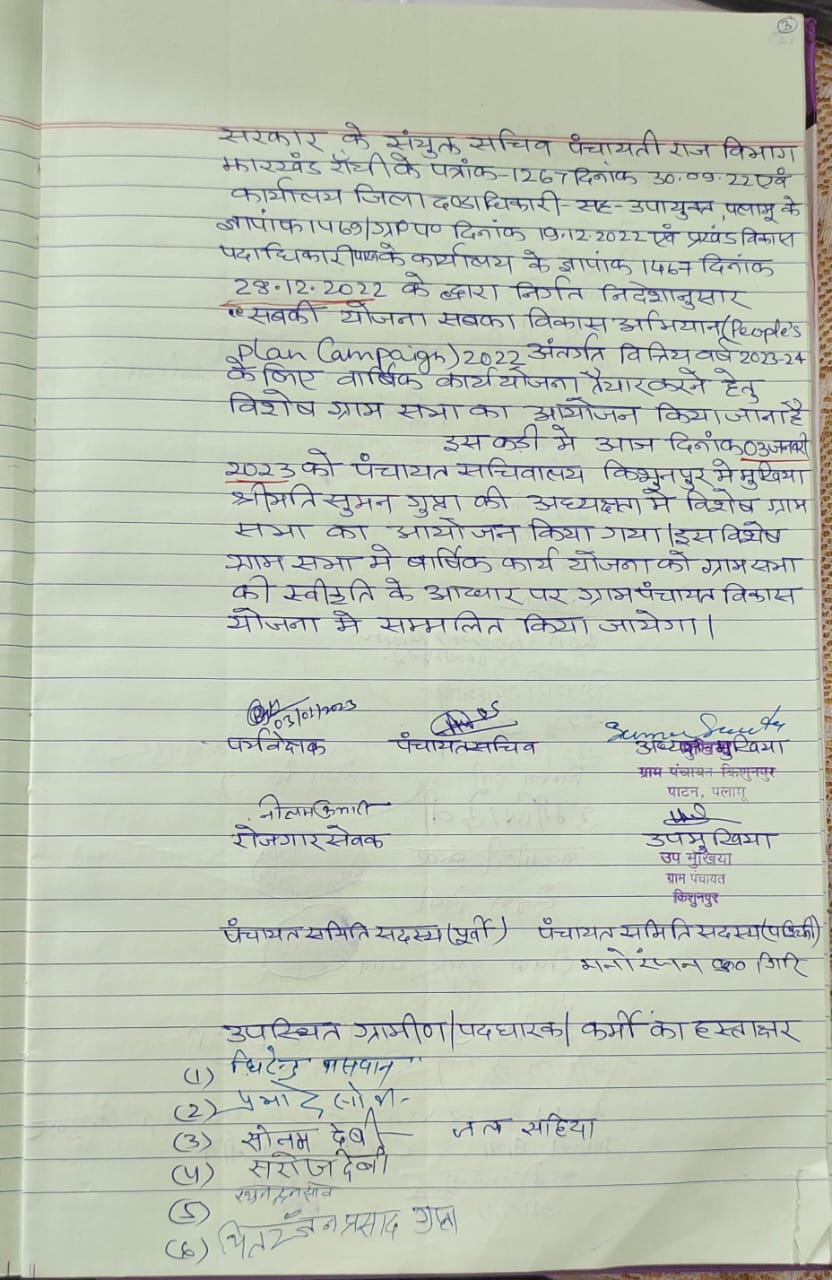 3
सरकार के संयुक्त सचिव पंचायती राज विभाग
झारखंड राँची के पत्रांक-1267 दिनांक 30.09.22 एवं
कार्यालय जिला दण्डाधिकारी-सह-उपायुक्त, पलामू के
ज्ञापांक 1469/ग्रा०पं० दिनांक 19.12.2022 एवं प्रखंड विकास
पदाधिकारी के कार्यालय के ज्ञापांक 1467 दिनांक
28.12.2022 के द्वारा निर्गत निदेशानुसार
"सबकी योजना सबका विकास अभियान (People's
plan Campaign) 2022 अंतर्गत वित्तिय वर्ष 2023-24
के लिए वार्षिक कार्य योजना तैयार करने हेतु
विशेष ग्राम सभा का आयोजन किया जाना है
इस कड़ी मे आज दिनांक 03 जनवरी
2023 को पंचायत सचिवालय किशुनपुर मे मुखिया
श्रीमति सुमन गुप्ता की अध्यक्षता मे विशेष ग्राम
सभा का आयोजन किया गया। इस विशेष
ग्राम सभा मे बार्षिक कार्य योजना को ग्राम सभा
की स्वीकृति के आधार पर ग्राम पंचायत विकास
योजना मे सम्मलित किया जायेगा।
03/01/2023
पर्यवेक्षक पंचायत सचिव अध्यक्ष मुखिया
ग्राम पंचायत किशुनपुर
पाटन, पलामू
नीलम कुमारी
रोजगार सेवक उपमुखिया
उप मुखिया
ग्राम पंचायत
किशुनपुर
पंचायत समिति सदस्य (पूर्वी) पंचायत समिति सदस्य (पश्चिमी)
मनोरंजन कु० गिरि
उपस्थित ग्रामीण/पदधारक/कर्मी का हस्ताक्षर
(1) पासवान
(2) प्रभा देवी
(3) सोनम देवी - जल सहिया
(4) सरोज देवी
(5)
(6) चितरंजन प्रसाद गुप्ता